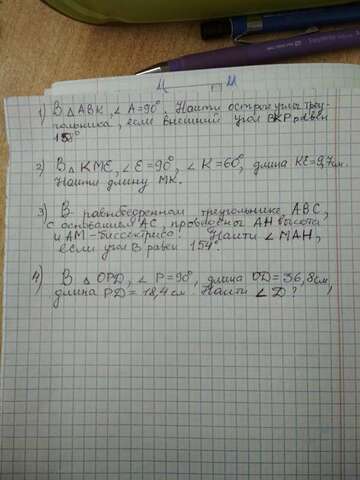 1) В △ ABK, ∠ A = 90°. Найти острые углы треу-
гольника, если внешний угол BKP равен
2) В △ KME, ∠ E = 90°, ∠ K = 60°, длина KE = 9,7 см.
Найти длину MK.
3) В равнобедренном треугольнике, ABC,
с основанием AC, проведены AH высота
и AM - биссектриса. Найти ∠ MAH,
если угол B равен 154°.
4) В △ OPD, ∠ P = 90°, длина OD = 36,8 см,
длина PD = 18,4 см. Найти ∠ D?